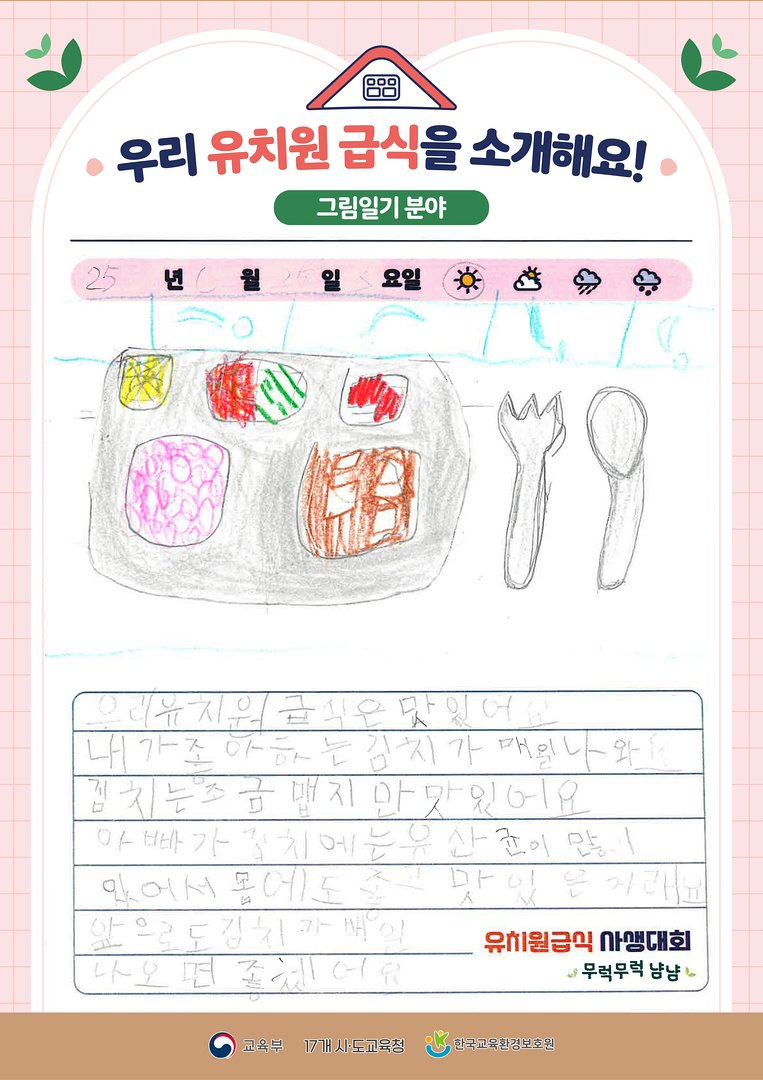 우리 유치원 급식을 소개해요!
그림일기 분야
25 년 6 월 25 일 요일
우리유치원 급식은 맛있어요
내가 좋아하는 김치가 매일 나와요
김치는 조금 맵지만 맛있어요
아빠가 김치에는 유산균이 많이
있어서 몸에도 좋고 맛있은 거래요
앞으로도 김치가 매일
나오면 좋겠어요
유치원급식 사생대회
무럭무럭 냠냠
교육부 17개 시·도교육청 한국교육환경보호원